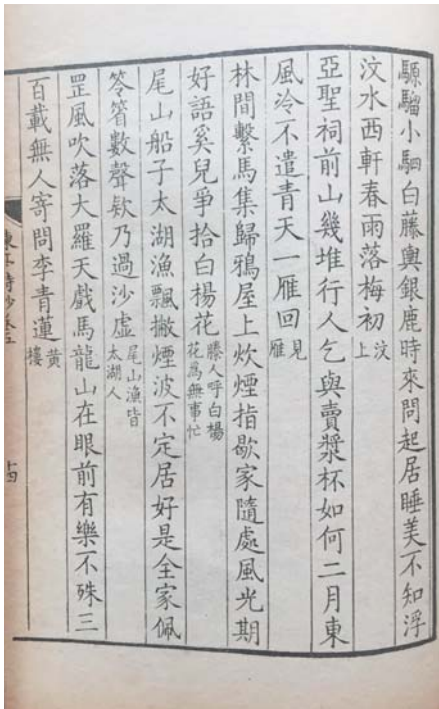 騵騮小駟白藤輿銀鹿時來問起居睡美不知浮
汶水西軒春雨落梅初汶上
亞聖祠前山幾堆行人乞與賣漿杯如何二月東
風冷不遣青天一雁回見雁
林間繫馬集歸鴉屋上炊煙指歇家隨處風光期
好語奚兒爭拾白楊花滕人呼白楊花爲無事忙
尾山船子太湖漁飄撇煙波不定居好是全家佩
笭箵數聲欸乃過沙虛尾山漁皆太湖人
罡風吹落大羅天戲馬龍山在眼前有樂不殊三
百載無人寄問李青蓮黃樓
十四